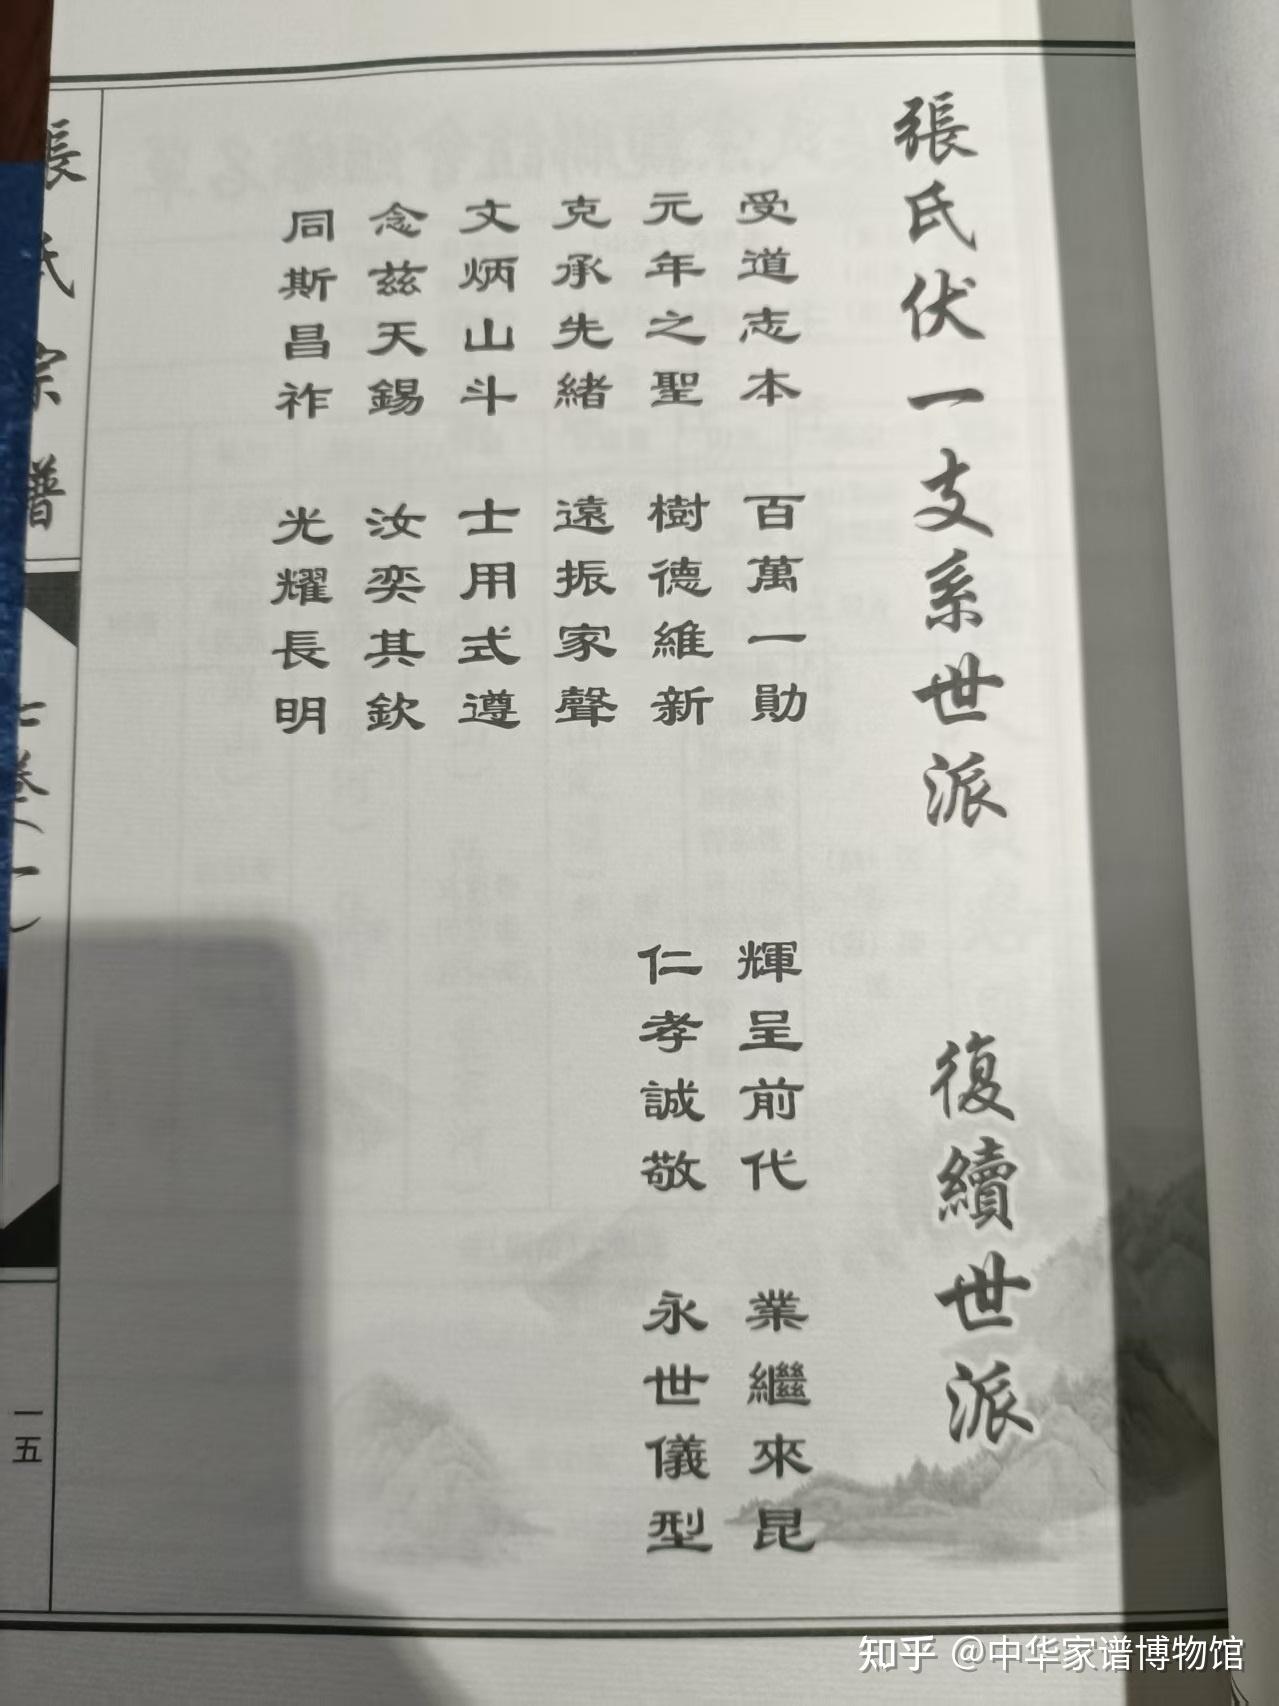 張氏伏一支系世派
受道志本 百萬一勛
元年之聖 樹德維新
克承先緒 遠振家聲
文炳山斗 士用式遵
念茲天錫 汝奕其欽
同斯昌祚 光耀長明
復續世派
輝呈前代 業繼來昆
仁孝誠敬 永世儀型
張氏宗譜
七卷（一）
一五
知乎 @中华家谱博物馆